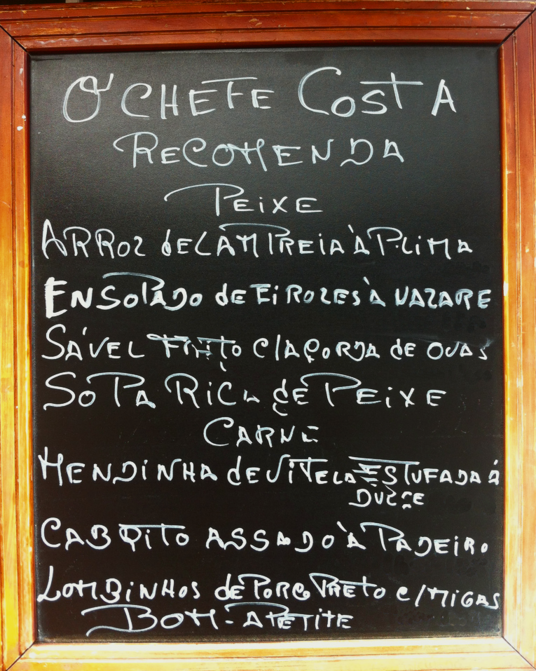 O'CHEFE COSTA
RECOMENDA
PEIXE
ARROZ de LAMPREIA À P. LIMA
ENSOPADO de EiROZES À NAZARE
SÁVEL FRITO C/AÇORDA de OVAS
SOPA RICA de PEiXE
CARNE
MENDINHA de VITELA ESTUFADA Á
CABRITO ASSADO À PADEIRO
LOMBINHOS de PORCO PRETO C/MIGAS
BOM-APETITE